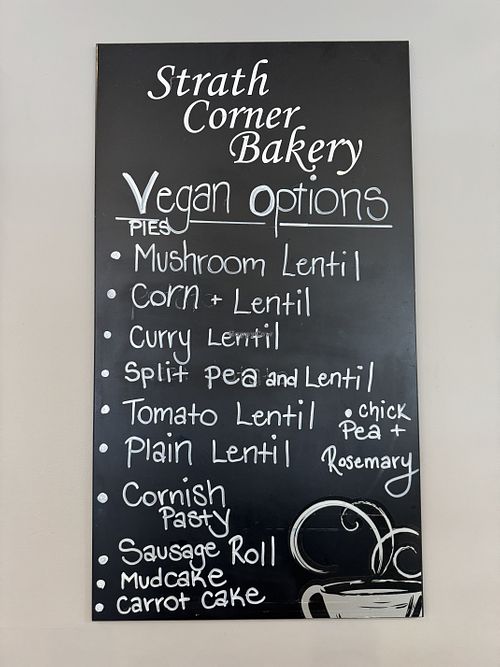 Strath
Corner
Bakery
Vegan Options
PIES
• Mushroom Lentil
• Corn + Lentil
• Curry Lentil
• Split Pea and Lentil
• Tomato Lentil
• Plain Lentil
• Chick
Pea +
Rosemary
• Cornish
Pasty
• Sausage Roll
• Mudcake
• Carrot Cake